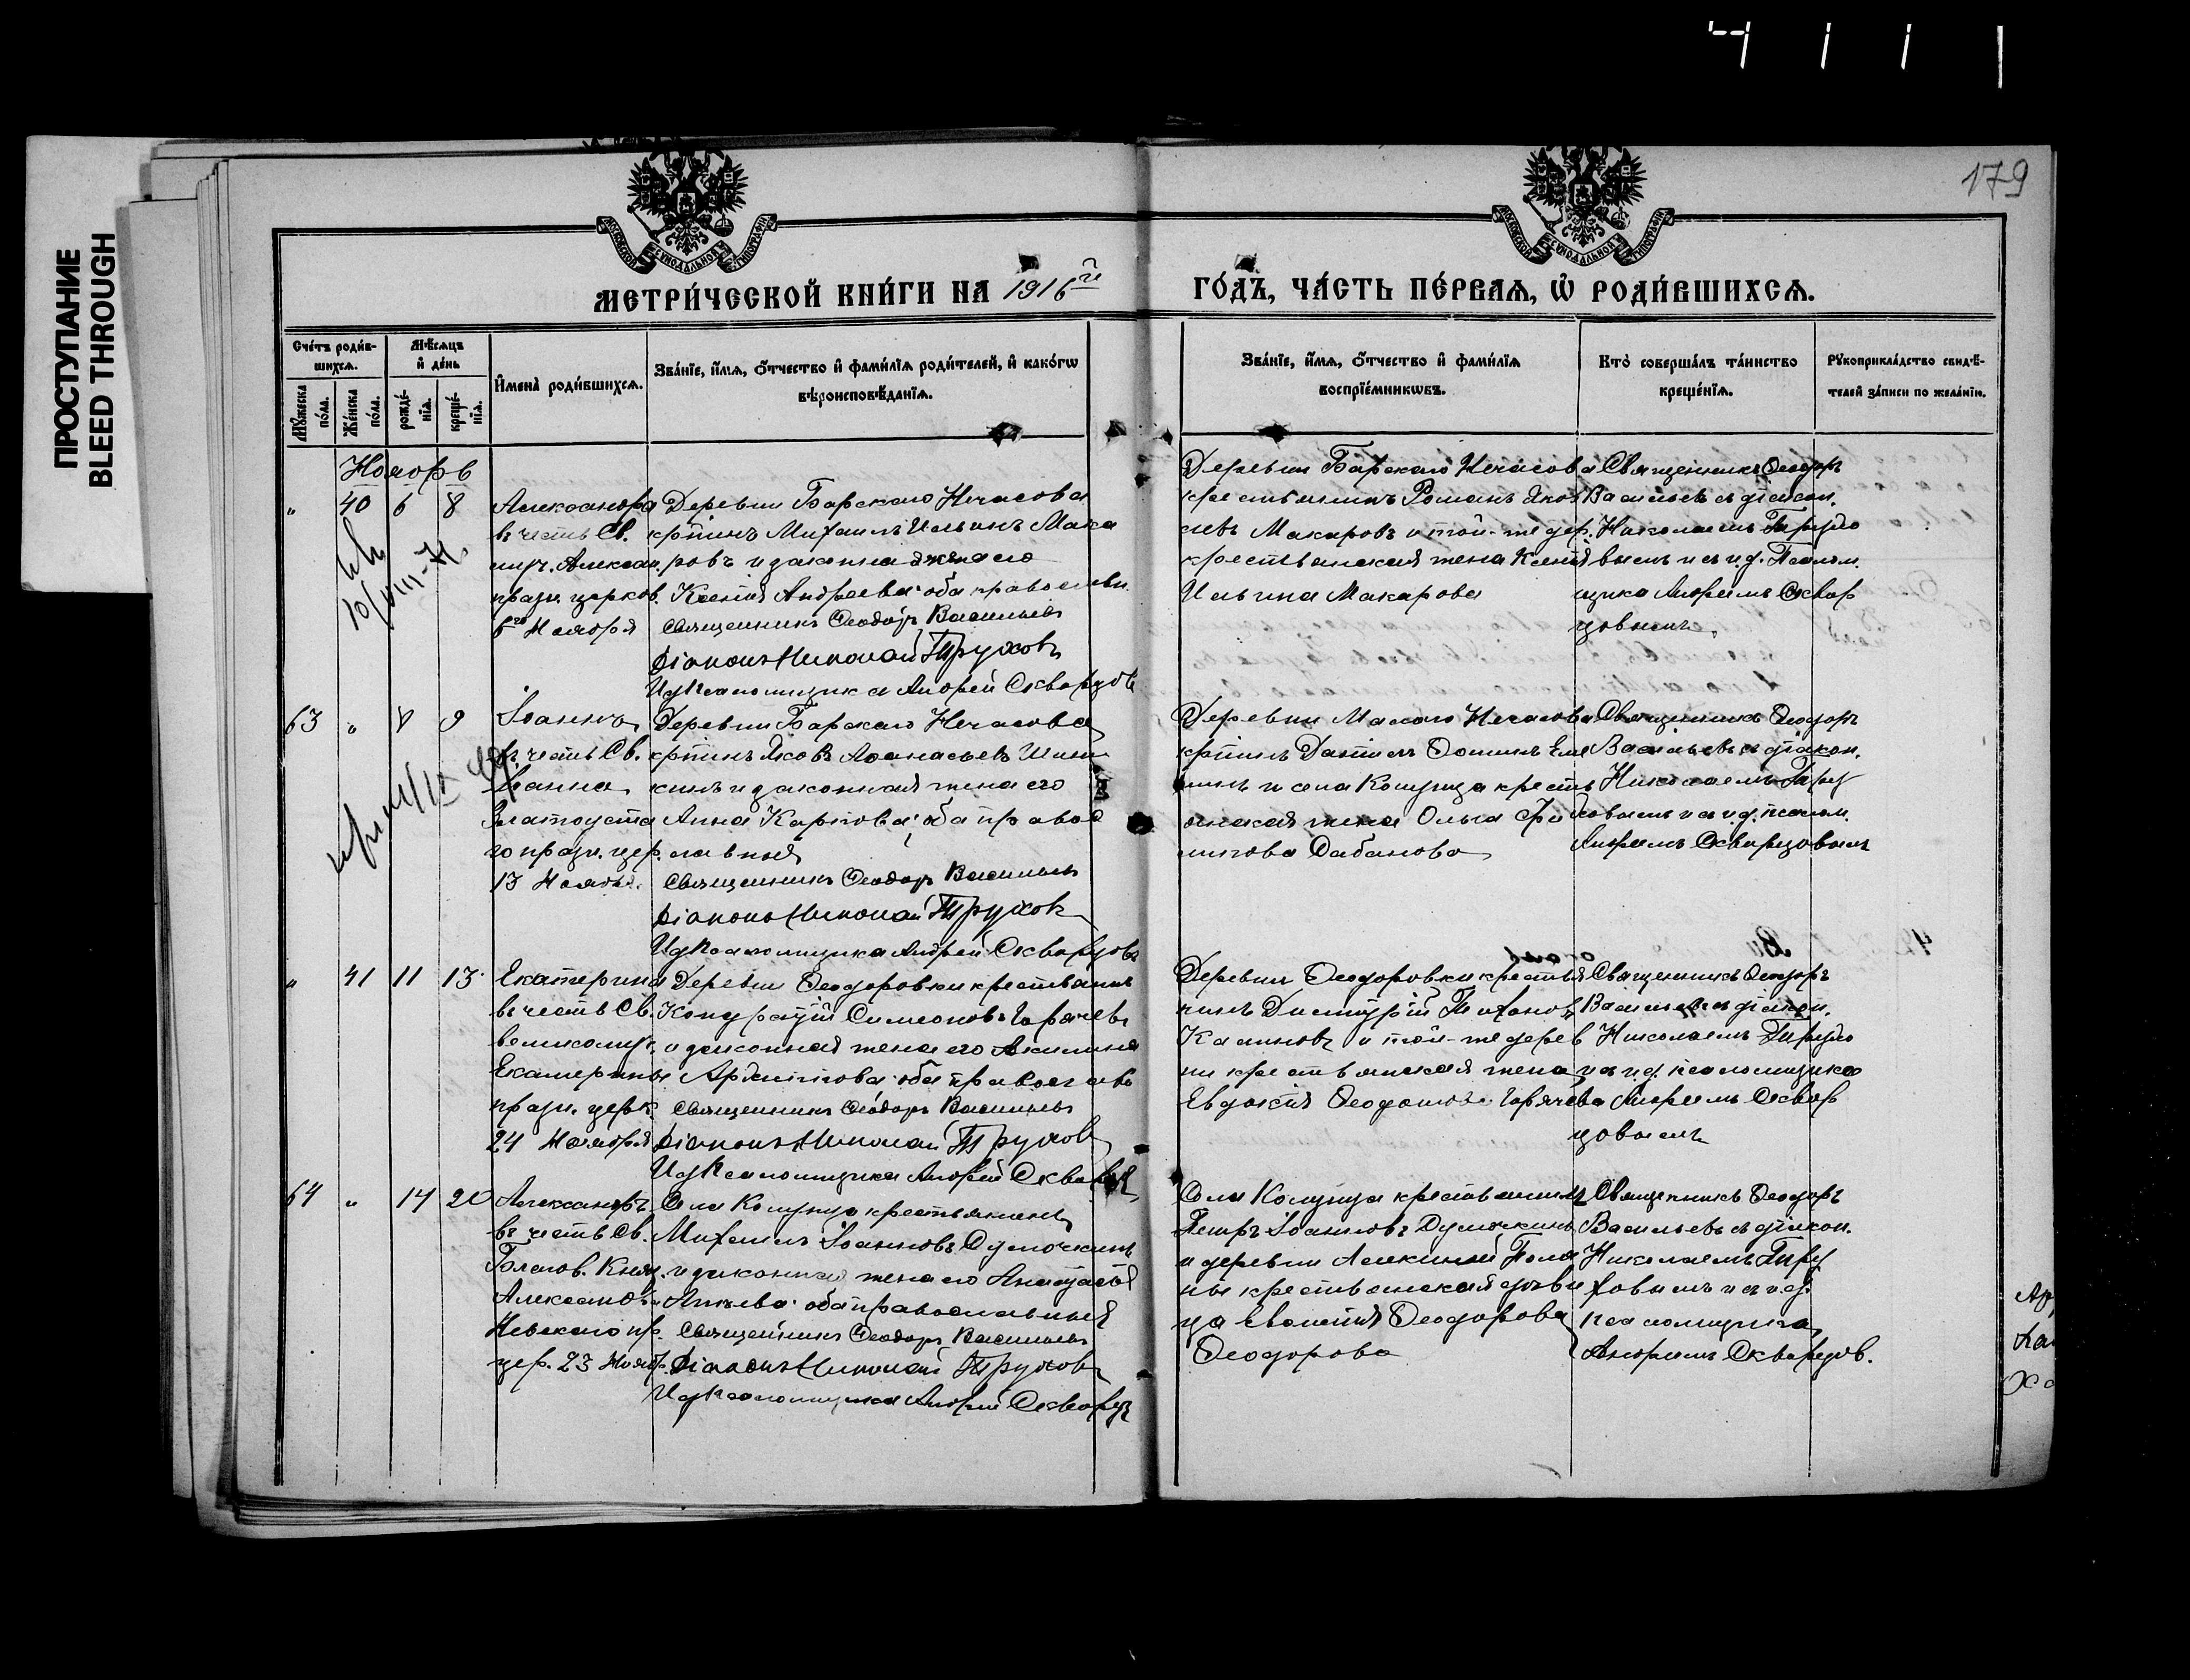 179
ПРОСТУПАНИЕ
BLEED THROUGH
МОСКОВСКОЙ СѴНОДАЛЬНОЙ ТИПОГРАФІИ
МОСКОВСКОЙ СѴНОДАЛЬНОЙ ТИПОГРАФІИ
МЕТРИ́ЧЕСКОЙ КНИ́ГИ НА 1916й
ГО́ДЪ, ЧА́СТЬ ПЕ́РВАѦ, Ѡ҆ РОДИ́ВШИХСѦ.
Сче́тъ роди́в-
шихсѧ.
Мꙋ́жеска по́ла.
Же́нска по́ла.
Мѣ́сѧцъ
и҆ де́нь
рожде́-
нїѧ.
креще́-
нїѧ.
И҆мена̀ роди́вшихсѧ.
Зва́нїе, и҆́мѧ, ѻ҆́тчество и҆ фами́лїѧ роди́телей, и҆ како́гѡ
вѣроисповѣ́данїѧ.
Зва́нїе, и҆́мѧ, ѻ҆́тчество и҆ фами́лїѧ
воспрїе́мникѡвъ.
Кто̀ соверша́лъ та́инство
креще́нїѧ.
Рꙋкоприкла́дство свидѣ́-
телей за́писи по жела́нїю.
Ноябрь
" 40 6 8
Александра
въ честь Св.
муч. Алексан.
празн. церков.
6го Ноября
Деревни Барскаго Нечасова
крпинъ Михаилъ Ильинъ Мака
ровъ и законная жена его
Ксенія Андреева: оба православн.
Священникъ Ѳеодоръ Васильевъ
Діаконъ Николай Труховъ
Ид Псаломщика Андрей Скворцовъ
Деревни Барскаго Нечасова
крестьянинъ Романъ Яков
левъ Макаровъ и той-же дер.
крестьянская жена Ксенія
Ильина Макарова
Священникъ Ѳеодоръ
Васильевъ съ діакон.
Николаемъ Трухо
вымъ и и.д. Псалом.
щика Андреемъ Сквор
цовымъ.
63 " 8 9
Іоаннъ
въ честь Св.
Іоанна
Златоуста
го празн. цер.
13 Ноября.
Деревни Барскаго Нечасова
крпинъ Яковъ Аѳанасьевъ Шиш
кинъ и законная жена его
Анна Карпова: оба правос
лавныя
Священникъ Ѳеодоръ Васильевъ
Діаконъ Николай Труховъ
Ид Псаломщика Андрей Скворцовъ
Деревни Малаго Нечасова
крпинъ Ѳоминъ
и села Колунца кресть
янская жена Ольга
Дабанова
Священникъ Ѳеодоръ
Васильевъ съ діакон.
Николаемъ Тру
ховымъ и и.д. псалом.
Андреемъ Скворцовымъ
" 41 11 13
Екатерина
въ честь Св.
великомуч.
Екатерины
празн. церк.
24 Ноября
Деревни Ѳеодоровки крестьянинъ
Кондратій Симеоновъ Горячевъ
и законная жена его Акилина
оба православ
Священникъ Ѳеодоръ Васильевъ
Діаконъ Николай Труховъ
Ид Псаломщика Андрей Скворцов
Деревни Ѳеодоровки крестья
нинъ Димитрій Тихонов
Калиновъ и той-же дерев
ни крестьянская жена
Евдокія Горячева
Священникъ Ѳеодоръ
Васильевъ съ діакон.
Николаемъ Трухо
и и.д. псаломщика
Андреемъ Сквор
цовымъ
64 " 14 20
Александръ
въ честь Св.
Благов. Княз.
Александра
Невскаго пр.
цер. 23 Нояб.
Села Колунца крестьянинъ
Михаилъ Іоанновъ Думочкинъ
и законная жена его Анастасія
оба православныя
Священникъ Ѳеодоръ Васильевъ
Діаконъ Николай Труховъ
Ид Псаломщика Андрей Скворцов
Села Колунца крестьянинъ
Петръ Іоанновъ Думочкинъ
и деревни Поля
ны крестьянская дѣви
ца Ѳеодорова
Ѳеодорова
Священникъ Ѳеодоръ
Васильевъ съ діакон.
Николаемъ Тру
ховымъ и и.д.
псаломщика
Андреемъ Скворцов.